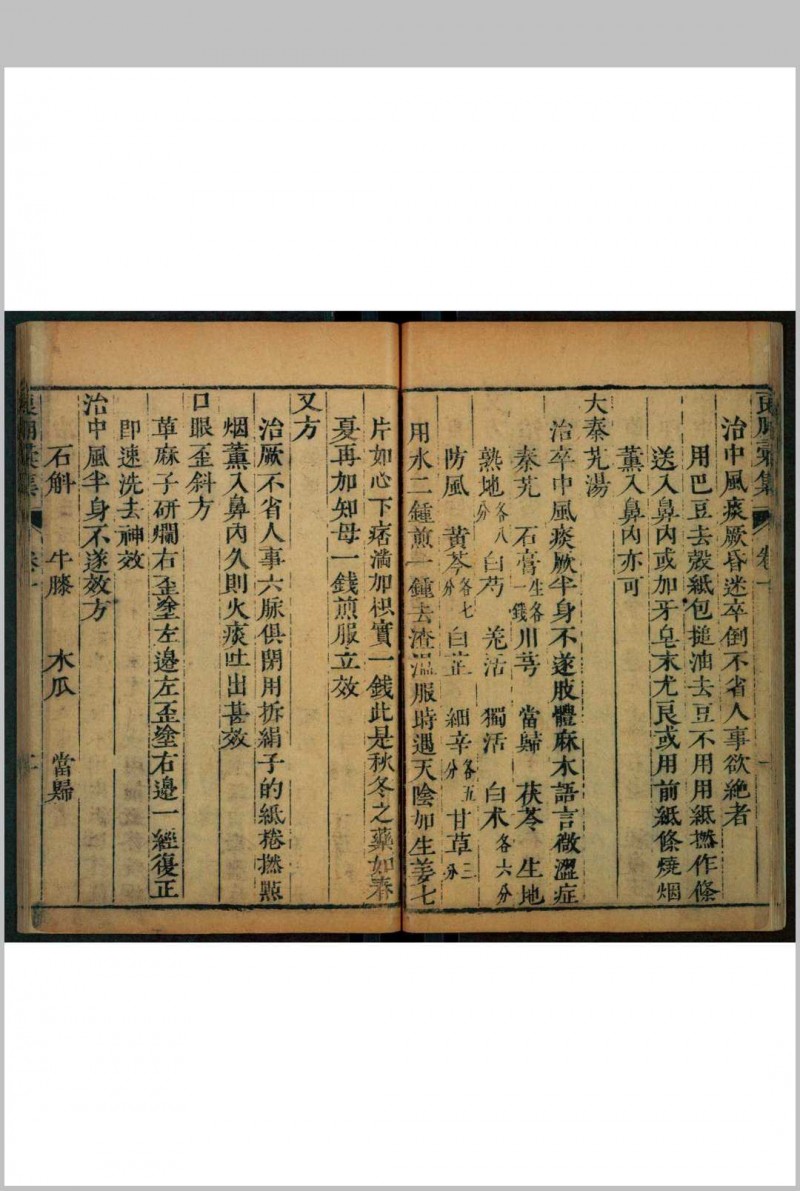 治中風痰厥昏迷卒倒不省人事欲絶者
用巴豆去殼紙包搥油去豆不用用紙撚作條
送入鼻內或加牙皂末尤良或用前紙條燒烟
薰入鼻內亦可
大秦艽湯
治卒中風痰厥半身不遂肢體麻木語言微澀症
秦艽 石膏生各一錢 川芎 當歸 茯苓 生地
熟地各八分 白芍 羌活 獨活 白术各六分
防風 黃芩各七分 白芷 細辛各五分 甘草三分
用水二鍾煎一鍾去渣溫服時遇天陰加生姜七
片如心下痞滿加枳實一錢此是秋冬之藥如春
夏再加知母一錢煎服立效
又方
治厥不省人事六脉俱閉用拆絹子的紙捲撚點
烟薰入鼻內久則火痰吐出甚效
口眼歪斜方
草麻子研爛右歪塗左邊左歪塗右邊一經復正
即速洗去神效
治中風半身不遂效方
石斛 牛膝 木瓜 當歸